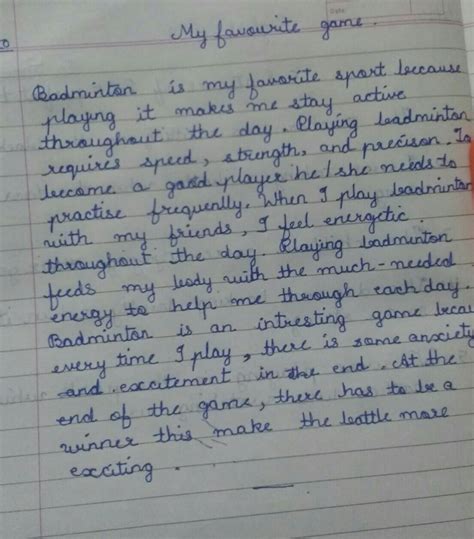 My favourite game.
Badminton is my favorite sport because
playing it makes me stay active
throughout the day. Playing badminton
requires speed, strength, and precison. To
become a good player he/she needs to
practise frequenlly. When I play badminton
with my friends, I feel energetic
throughout the day. Playing badminton
feeds my body with the much-needed
energy to help me through each day.
Badminton is an intresting game becau
every time I play, there is some anxiety
and excitement in the end. At the
end of the game, there has to be a
winner this make the battle more
exciting.